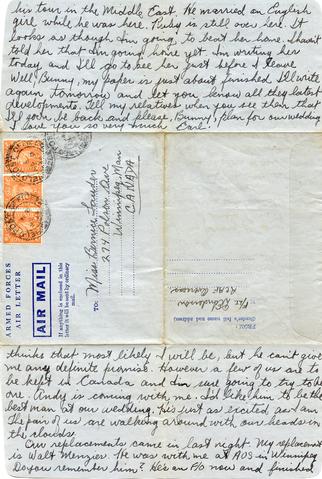 his tour in the Middle East. He married an English
girl while he was here. Ruby is still over here. It
looks as though I'm going to beat her home. I haven't
told her that I'm going home yet. I'm writing her
today, and I'll go to see her just before I leave
Well, Bunny, my paper is just about finished. I'll write
again tomorrow and let you know all the latest
developments. Tell my relatives when you see them that
I'll soon be back and please, Bunny, plan for our wedding
I love you so very much Earl.
ARMED FORCES
AIR LETTER
AIR MAIL
If anything is enclosed in this
letter it will be sent by ordinary
mail.
TO:
Miss
274 Polson Ave
Winnipeg, Man
CANADA
FROM:
(Sender's full name and address)
RCAF Overseas
thinks that most likely I will be, but he can't give
me any definite promise. However a few of us are to
be kept in Canada and I'm sure going to try to be
one. Andy is coming with me. I'd like him to be the
best man at our wedding. He's just as excited as I am.
The pair of us are walking around with our heads in
the clouds.
Our replacements came in last night. My replacement
is Walt Menzies. He was with me at AOS in Winnipeg
Do you remember him? He's an F/O now and finished